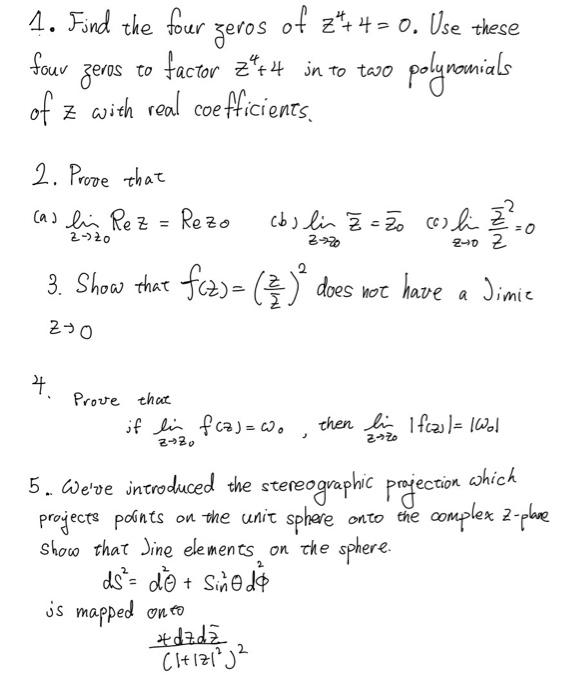 1. Find the four zeros of z⁴+4=0. Use these
four zeros to factor z⁴+4 in to two polynomials
of z with real coefficients.
2. Prove that
(a) lim Re z = Re z₀ (b) lim z̄ = z̄₀ (c) li z̄²/z = 0
z→z₀ z→z₀ z→0
3. Show that f(z) = (z/z̄)² does not have a limit
z→0
4. Prove that
if lim f(z) = ω₀, then lim |f(z)| = |ω₀|
z→z₀ z→z₀
5. We've introduced the stereographic projection which
projects points on the unit sphere onto the complex z-plane
show that line elements on the sphere.
ds² = d²θ + sin²θ dϕ²
is mapped onto
4dzdz̄
(1+|z|²)²